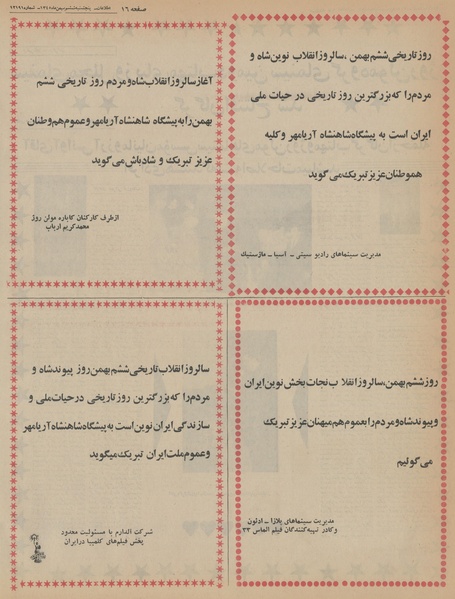 صفحه ۱۶
روز تاریخی ششم بهمن ، سالروز انقلاب نوین شاه و
مردم را که بزرگترین روز تاریخی در حیات ملی
ایران است به پیشگاه شاهنشاه آریامهر و کلیه
هموطنان عزیز تبریک می گوید
مدیریت سینماهای رادیو سیتی - آسیا - ماژستیک
آغاز سالروز انقلاب شاه و مردم روز تاریخی ششم
بهمن را به پیشگاه شاهنشاه آریامهر و عموم هم وطنان
عزیز تبریک و شادباش می گوید
از طرف کارکنان کاباره مولن روژ
محمد کریم ارباب
روز ششم بهمن، سالروز انقلاب نجات بخش نوین ایران
و پیوند شاه و مردم را بعموم هم میهنان عزیز تبریک
می گوئیم
مدیریت سینماهای پلازا - ادئون
و کادر تهیه کنندگان فیلم الماس ۳۳
سالروز انقلاب تاریخی ششم بهمن روز پیوند شاه و
مردم را که بزرگترین روز تاریخی در حیات ملی و
سازندگی ایران نوین است به پیشگاه شاهنشاه آریامهر
و عموم ملت ایران تبریک میگوید
شرکت الدارم با مسئولیت محدود
پخش فیلم‌های کلمبیا در ایران